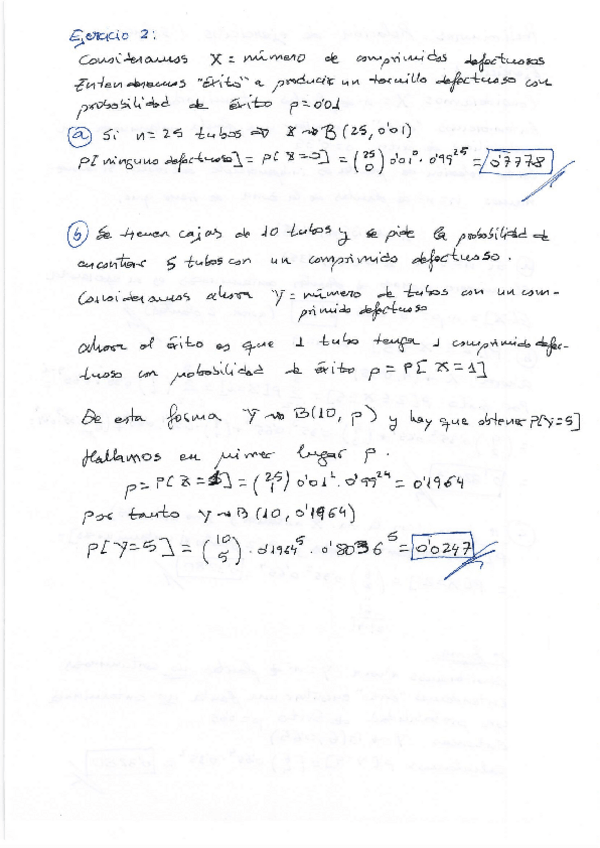 Ejercicio 2:
Consideramos X = número de comprimidos defectuosos
Entenderemos "éxito" a producir un tornillo defectuoso con
probabilidad de éxito p=0'01
a) Si n=25 tubos ⇒ X → B(25, 0'01)
P[ninguno defectuoso] = P[X=0] = (25 0) 0'01⁰ · 0'99²⁵ = 0'7778
b) Se tienen cajas de 10 tubos y se pide la probabilidad de
encontrar 5 tubos con un comprimido defectuoso.
Consideramos ahora Y = número de tubos con un com-
primido defectuoso
Ahora el éxito es que 1 tubo tenga 1 comprimido defec-
tuoso con probabilidad de éxito p = P[X=1]
De esta forma Y → B(10, p) y hay que obtener P[Y=5]
Hallamos en primer lugar p.
p = P[X=1] = (25 1) 0'01¹ · 0'99²⁴ = 0'1964
Por tanto Y → B(10, 0'1964)
P[Y=5] = (10 5) · 0'1964⁵ · 0'8036⁵ = 0'0247